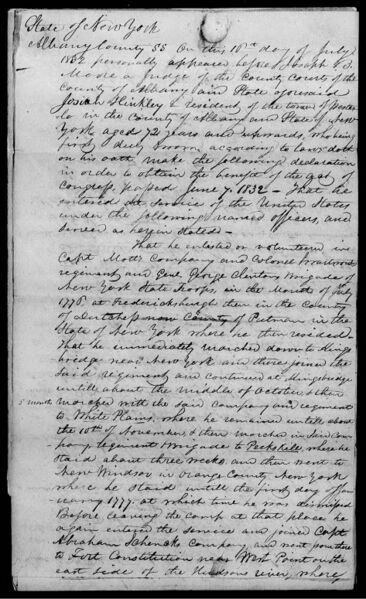 State of New York
Albany County SS On this 16th day of July
1832 personally appeared before Joseph S.
Mode a Judge of the County Courts of the
County of Albany and State aforesaid
Josiah Hinkley a resident of the town of Wester-
lo in the County of Albany and State of New
York aged 72 years and upwards, who being
first duly sworn according to law doth
on his oath make the following declaration
in order to obtain the benefit of the act of
Congress passed June 7, 1832 - That he
entered the service of the United States
under the following named officers, and
served as herein stated -
That he enlisted or volunteered in
Capt Motts Company and Colonel
regiment and Genl George Clintons Brigade of
New York State Troops, in the Month of July
1776 at Fredericksburgh then in the County
of Dutchess now County of Putnam in the
State of New York where he then resided -
That he immediately marched down to Kings
bridge near New York and there joined the
said regiment and continued at Kingsbridge
untill about the middle of October & then
5 months marched with the said company and regiment
to White Plains, where he remained untill about
the 10th of November & then marched in said com-
pany regiment & brigade to Peekskill where he
staid about three weeks, and then went to
New Windsor in Orange County, New York
where he staid untill the first day of Jan
uary 1777 at which time he was dismissed
Before leaving the camp at that place he
again entered the service and joined Capt
Abraham Schencks Company and went from there
to Fort Constitution near West Point on the
east side of the Hudsons river, where